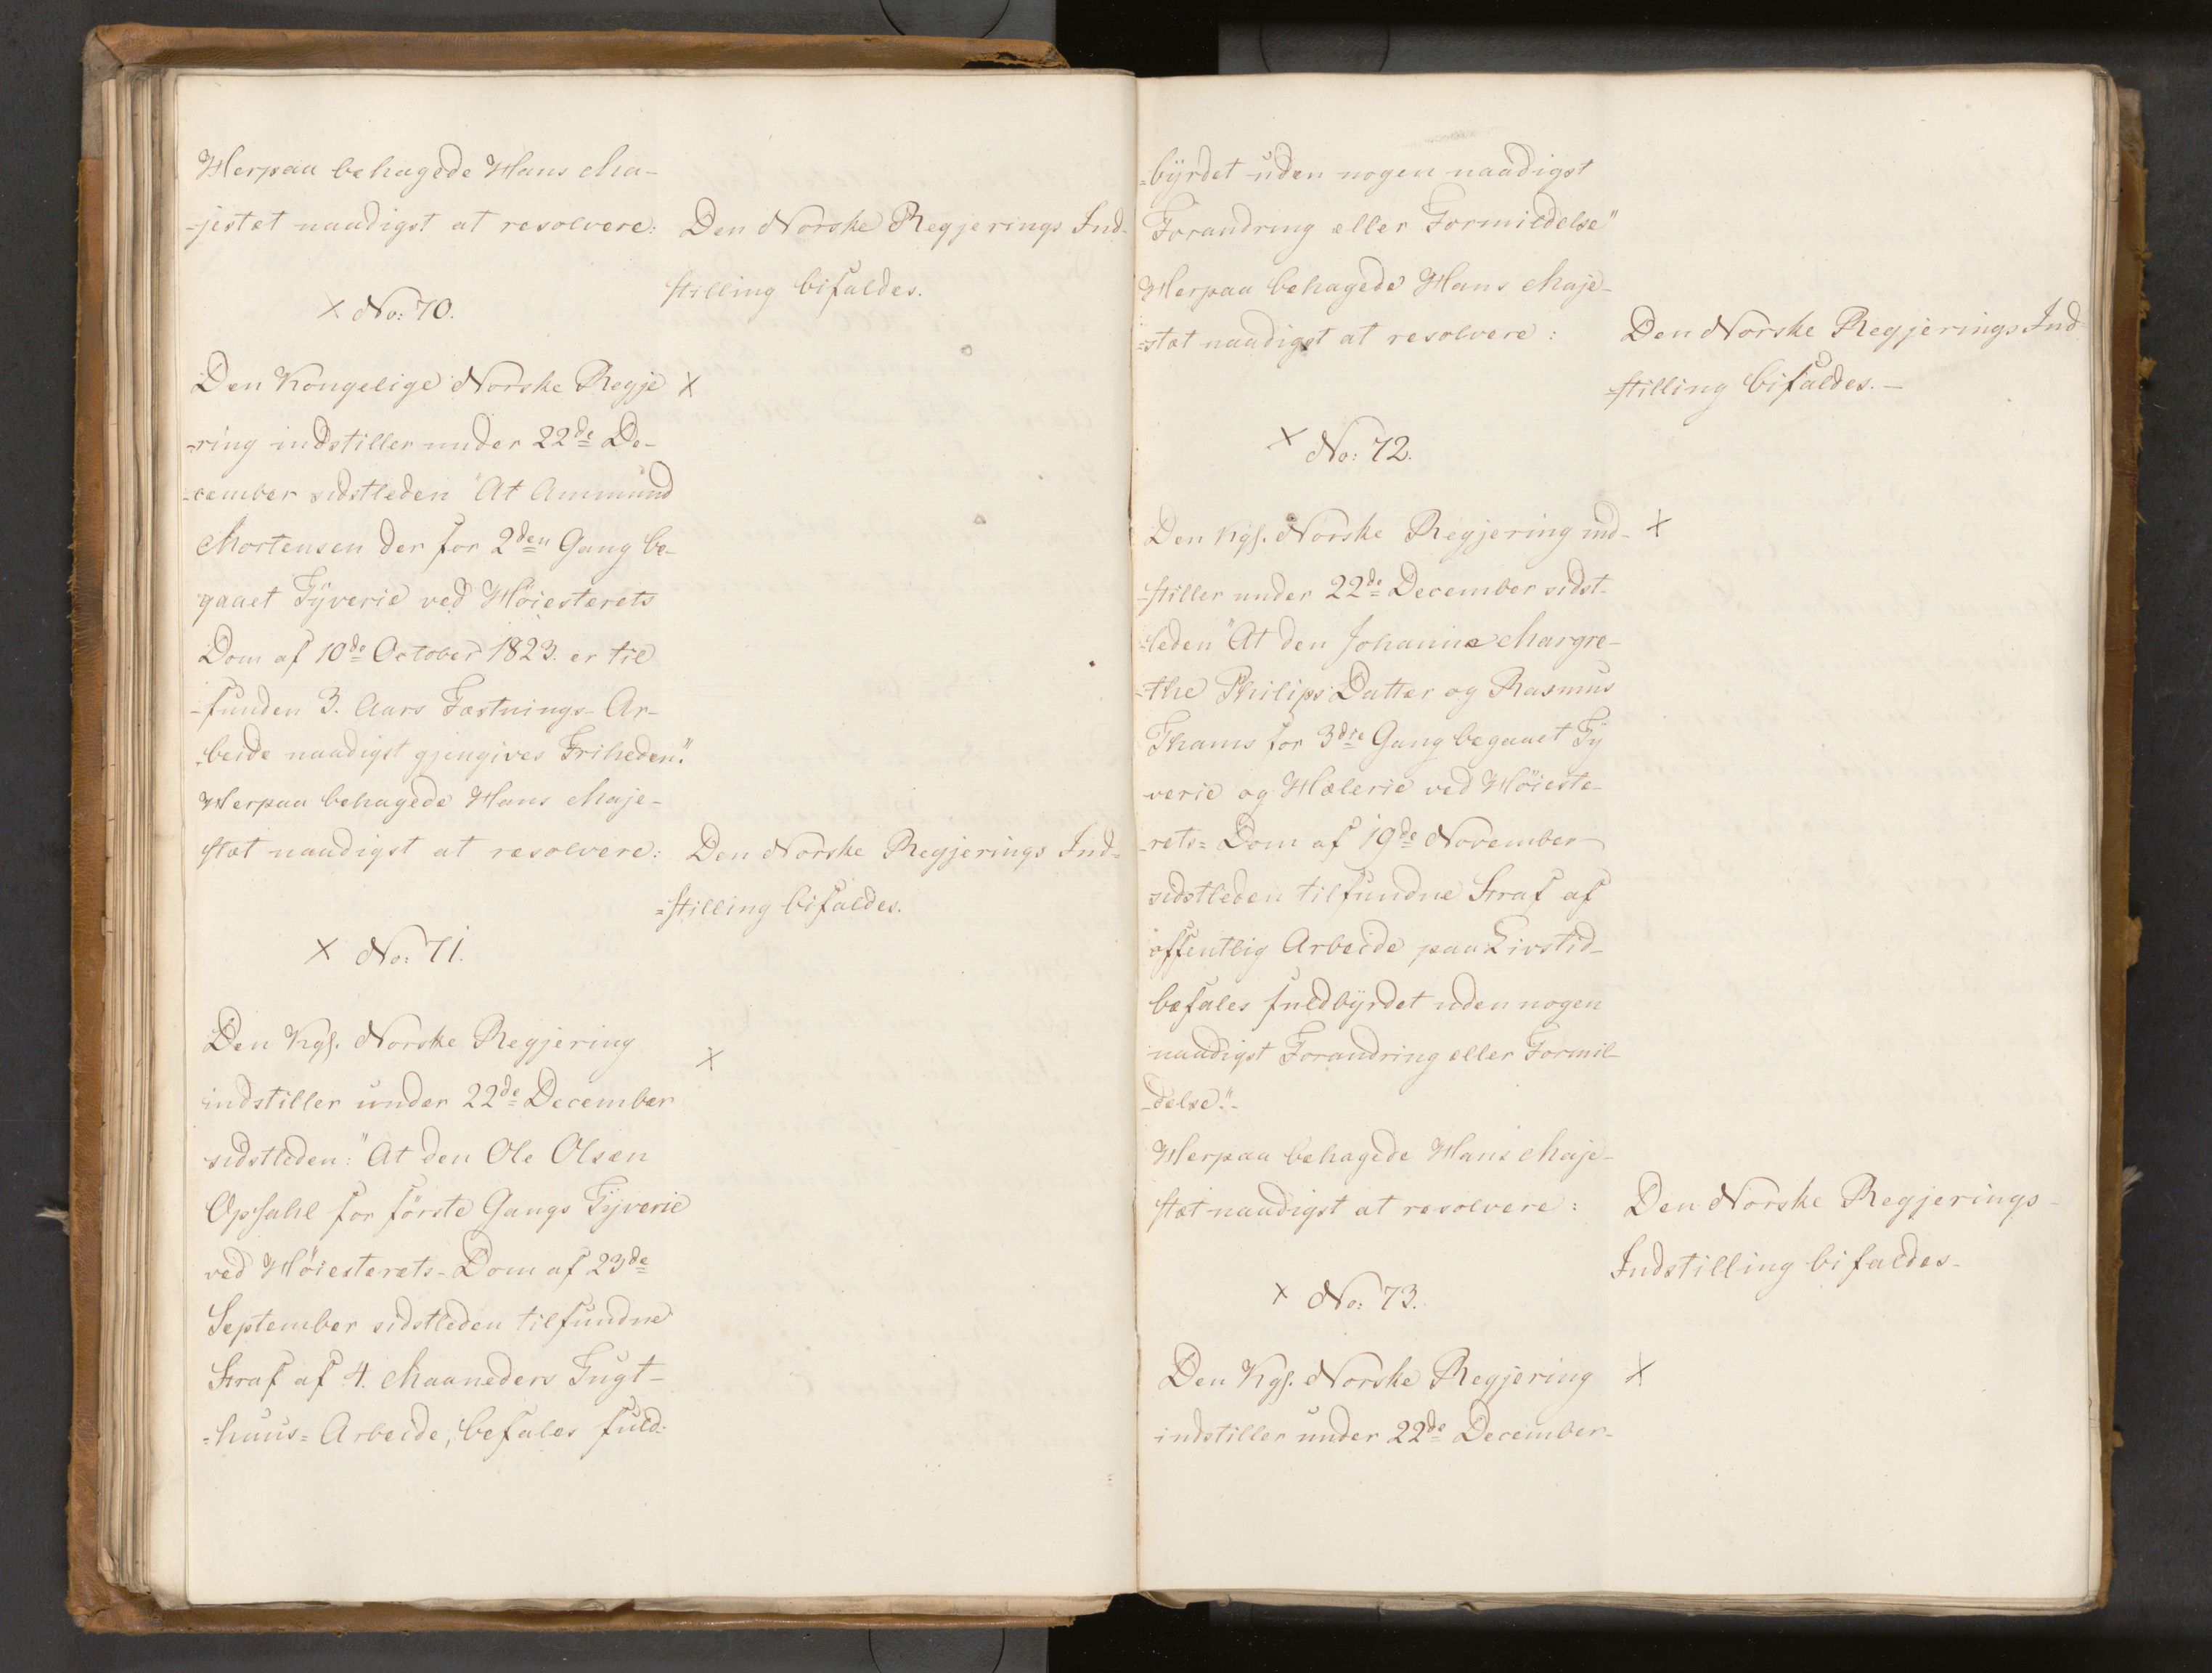 Herpaa behagede Hans Ma-
-jestæt naadigst at resolvere:
Den Norske Regjerings Ind-
stilling bifaldes.
× No: 70.
Den Kongelige Norske Regje ×
-ring indstiller under 22de De-
-cember sidstleden "At Ammund
Mortensen der for 2den Gang be-
gaaet Tyverie ved Høiesterets
Dom af 10de October 1823. er til
-funden 3. Aars Fæstnings-Ar-
-beide naadigst gjengives Friheden".
Herpaa behagede Hans Maje-
stæt naadigst at resolvere:
Den Norske Regjerings Ind-
=stilling bifaldes.
× No: 71.
Den Kgl. Norske Regjering ×
indstiller under 22de December
sidstleden: "At den Ole Olsen
Opsahl for første Gangs Tyverie
ved Høiesterets-Dom af 23de
September sidstleden tilfundne
Straf af 4. Maaneders Tugt-
=huus=Arbeide, befales fuld=
=byrdet uden nogen naadigst
Forandring eller Formildelse"
Herpaa behagede Hans Maje-
=stæt naadigst at resolvere:
Den Norske Regjerings Ind
-stilling bifaldes.-
× No: 72.
Den Kgl. Norske Regjering ind- ×
-stiller under 22de December sidst-
-leden "At den Johanne Margre-
-the Philips Datter og Rasmus
Thams for 3die Gang begaaet Ty
-verie og Hælerie ved Høieste-
-rets=Dom af 19de November
sidstleden tilfundne Straf af
offentlig Arbeide paa Livstid-
befales fuldbyrdet uden nogen
naadigst Forandring eller Formil-
-delse."-
Herpaa behagede Hans Maje-
stæt naadigst at resolvere:
Den Norske Regjerings-
Indstilling bifaldes-
× No: 73.
Den Kgl. Norske Regjering ×
indstiller under 22de December-